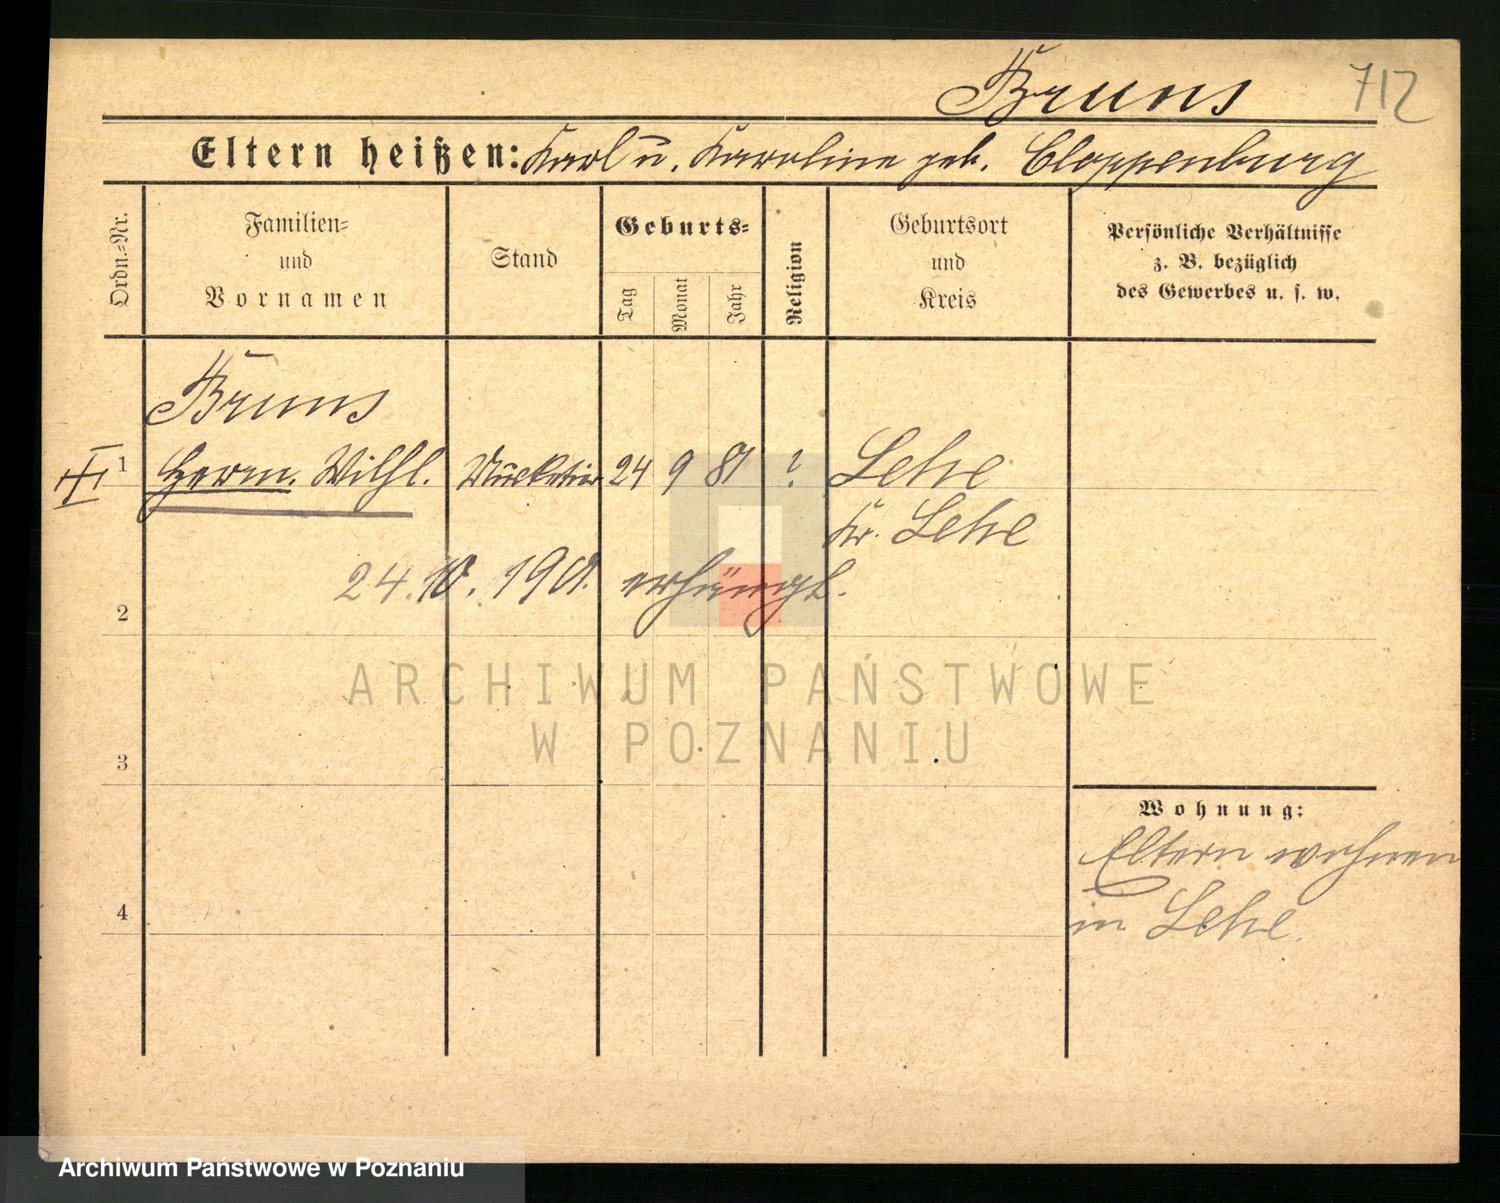 Bruns 712
Eltern heißen: Karl u. Karoline geb. Cloppenburg
Ordn.=Nr.
Familien=
und
Vornamen
Stand
Geburts=
Tag
Monat
Jahr
Religion
Geburtsort
und
Kreis
Persönliche Verhältnisse
z. B. bezüglich
des Gewerbes u. s. w.
Bruns
1 Herm. Wilhl. Musketier 24 9 81 ? Lehe
Kr. Lehe
24.10.1901 erhängt.
2
3
4
Wohnung:
Eltern wohnen
in Lehe.
ARCHIWUM PAŃSTWOWE
W POZNANIU
Archiwum Państwowe w Poznaniu